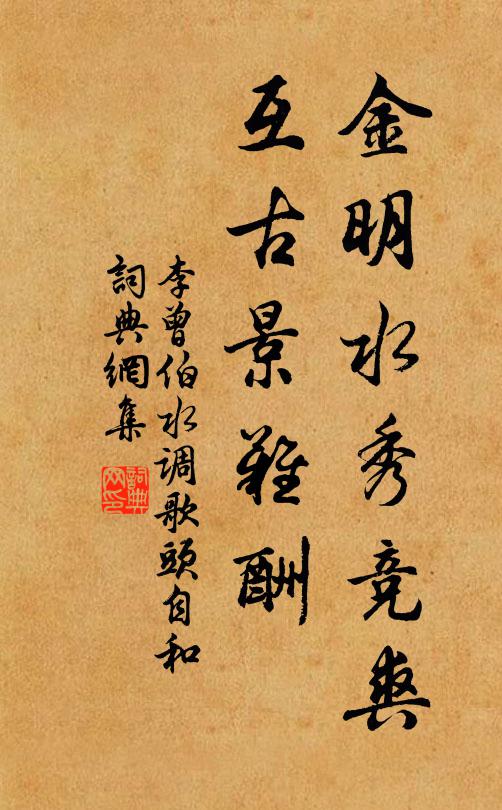 金明水秀竞爽
互古景難酬
李曾伯水调歌頭自和
詞典網集
詞典網印